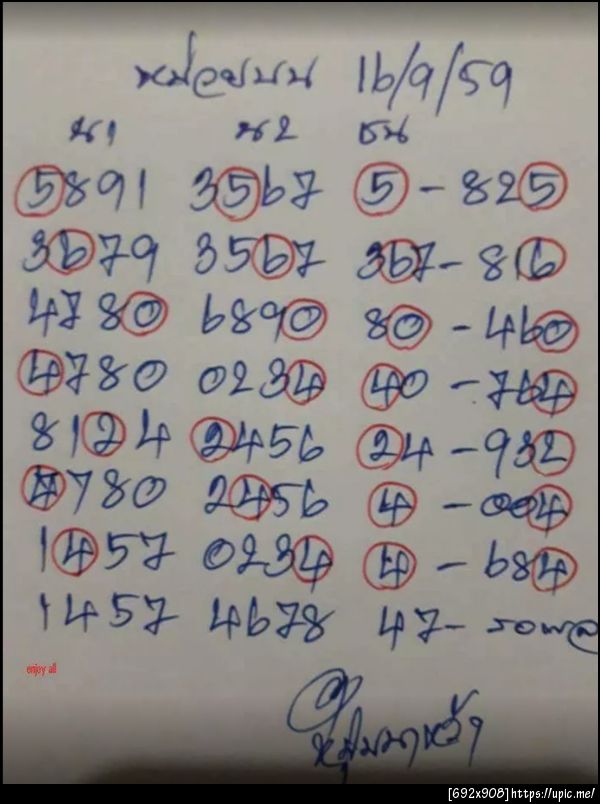 หน่อยบน 16/9/59
น1 น2 ชน
5891 3567 5 - 825
3679 3567 367 - 816
4780 6890 80 - 460
4780 0234 40 - 764
8124 2456 24 - 932
4780 2456 4 - 004
1457 0234 4 - 684
1457 4678 47 - รอผล
enjoy all
[692x908]https://upic.me/